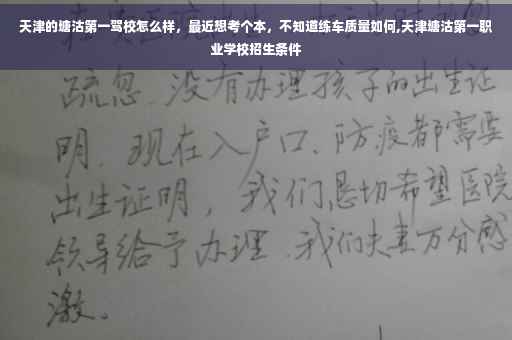 天津的塘沽第一骂校怎么样，最近想考个本，不知道练车质量如何,天津塘沽第一职
业学校招生条件
疏忽.没有办理孩子的出生证
明.现在入户口、防疫都需要
出生证明，我们恳切希望医院
领导给予办理.我们夫妻万分感
激。